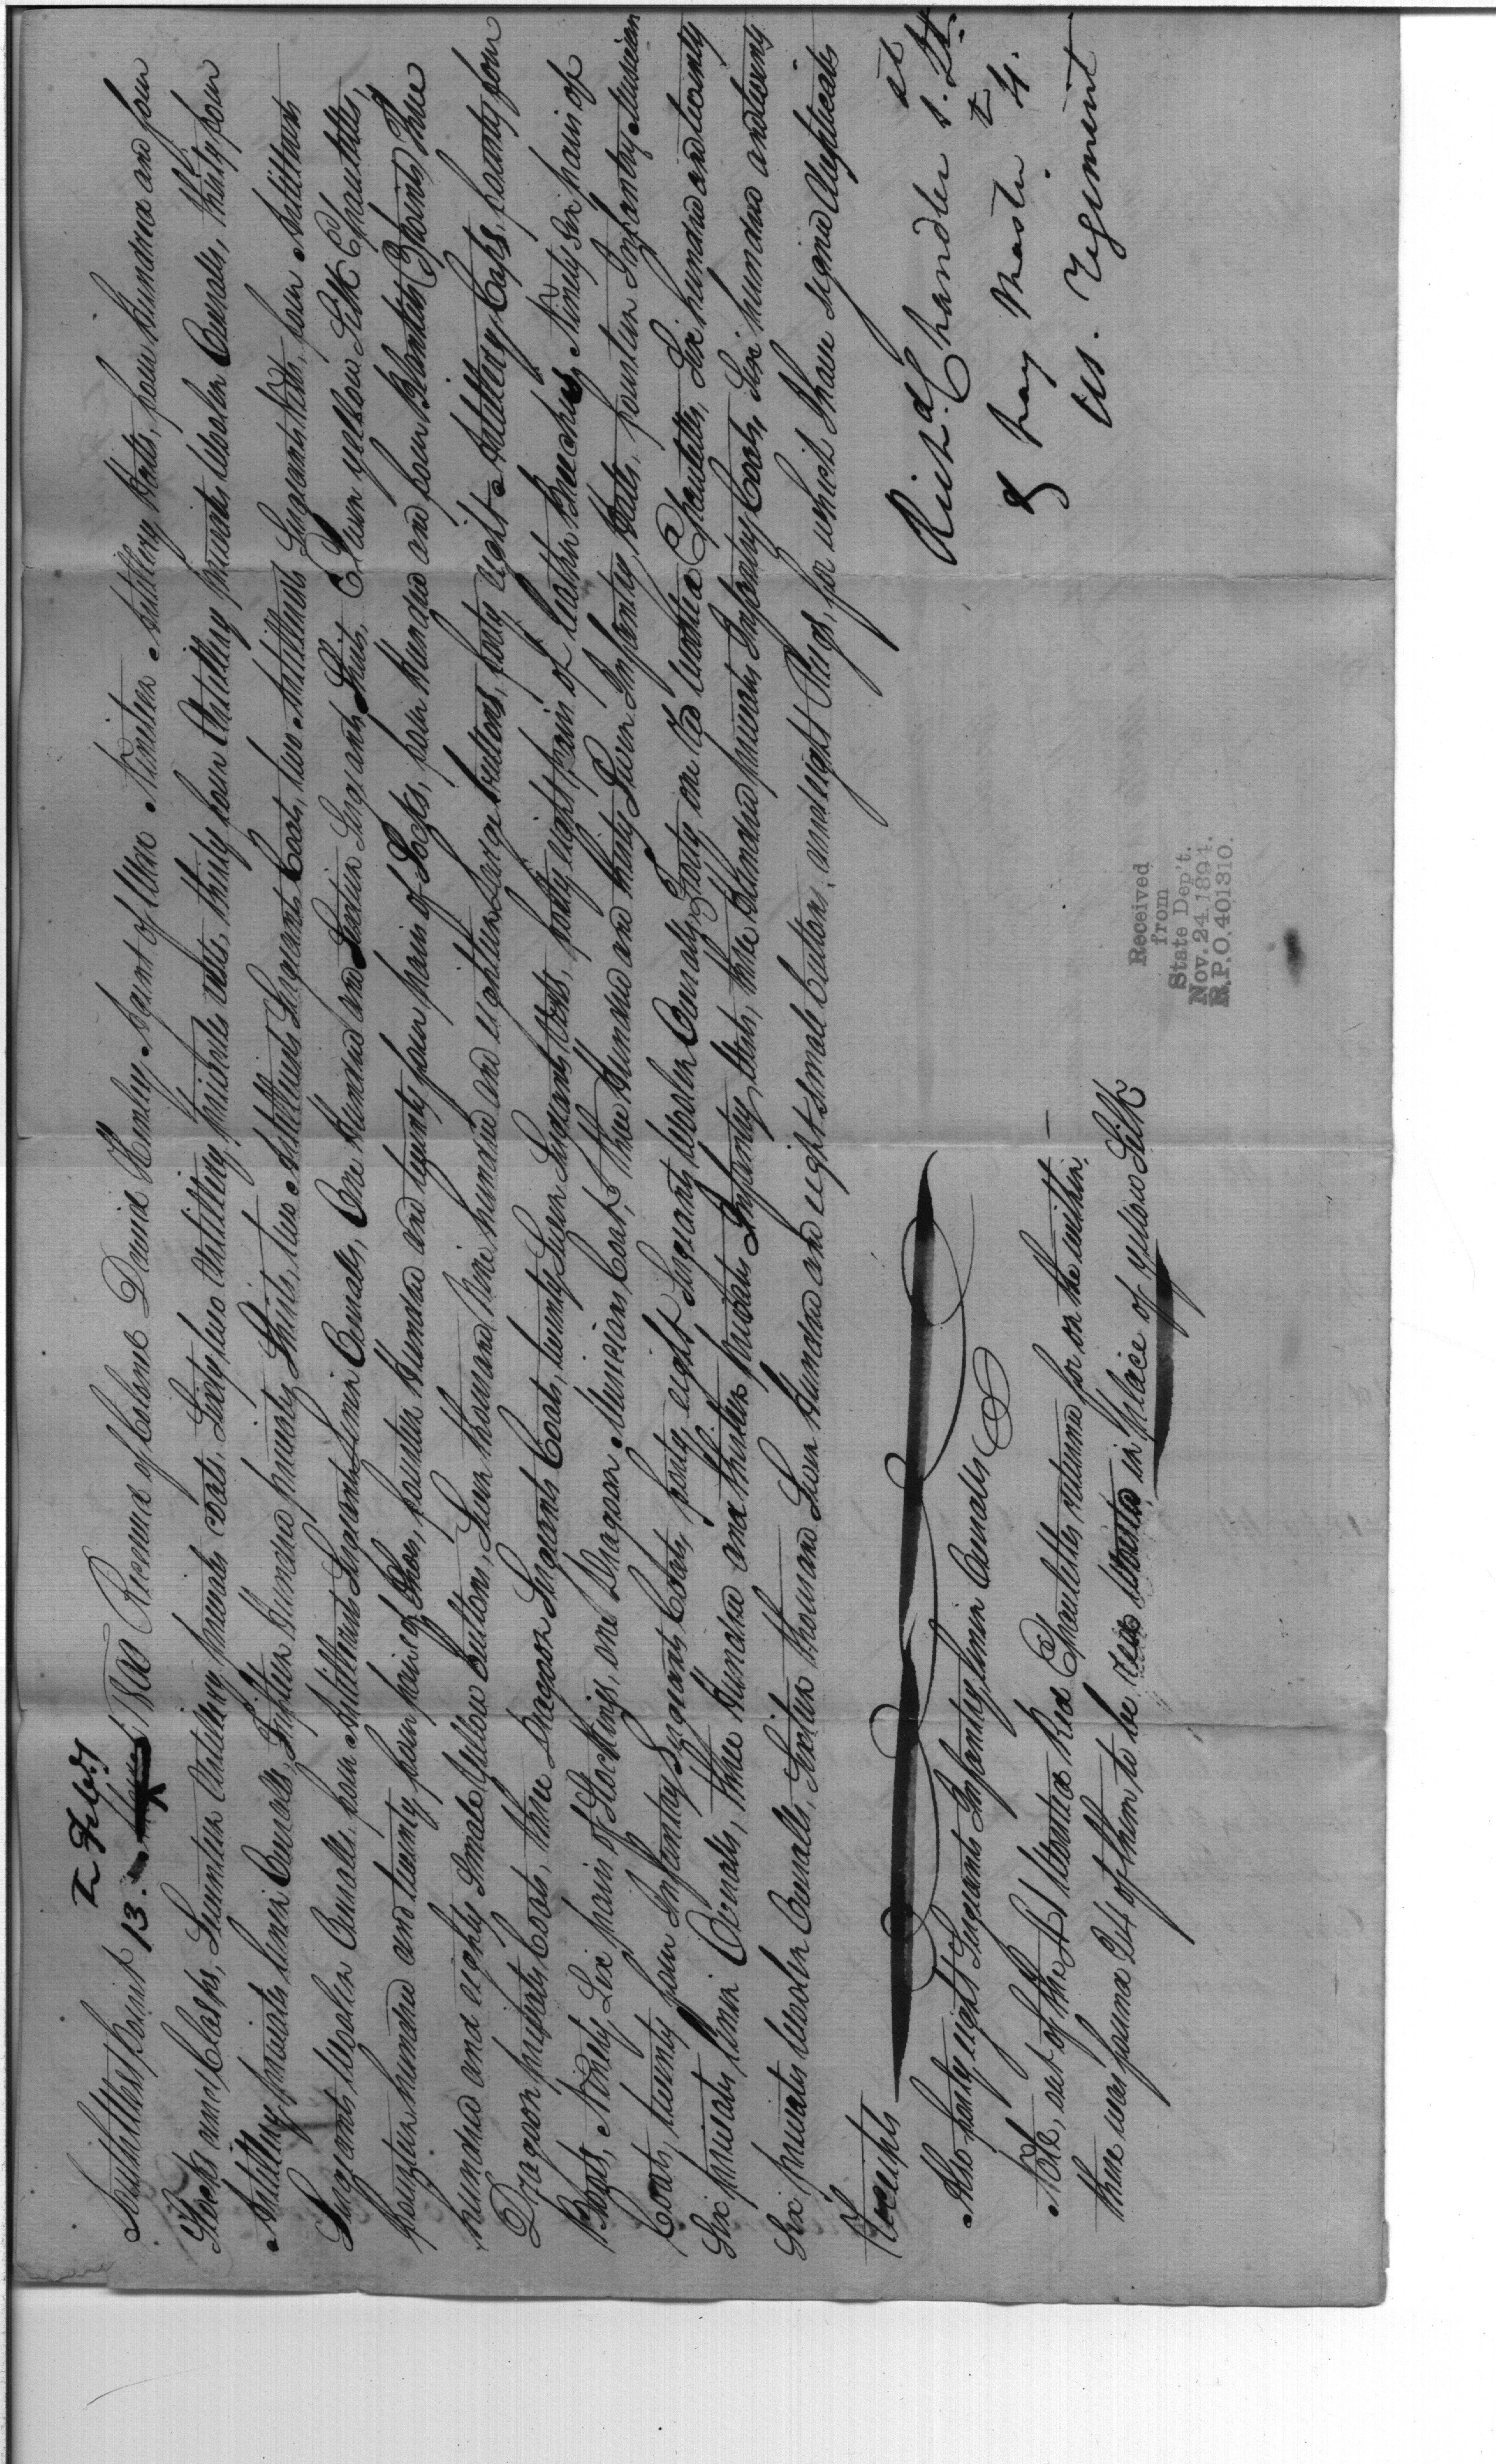 South West Point 13. Feby 1800 Received of Colonel David Henley Agent of War Nineteen Artillery Hats, four hundred and four
Stocks and Clasps, Seventeen Artillery privates coats, Sixty two Artillery privates vests, thirty four Artillery privates woolen Overalls, thirty four
Artillery privates linen Overalls, Fifteen hundred twenty Shirts, two Artillerists Sergeants Coats, two Artillerists Sergeants Vests, four Artillerists
Sergeants woolen Overalls, four Artillerist Sergeants Linen Overalls, One Hundred and Seventeen Sergeants Shirts, Eleven yellow Silk Epauletts,
fourteen hundred and twenty four pairs of Shoes, fourteen Hundred and twenty four pairs of Socks, four Hundred and four Blankets (3 points) Three
hundred and eighty Small Yellow Buttons, Seven thousand Nine hundred and eighteen Large buttons, forty eight Artillery Caps, twenty four
Dragoon privates Coats, three Dragoon Sergeants Coats, twenty Seven Sergeants Vests, forty eight pairs of leather Breeches, Ninety Six pairs of
Boots, Ninety Six pairs of Stockings, one Dragoon Musicians Coat, three Hundred and thirty Seven Infantry Hats, fourteen Infantry Musician
Coats, twenty four Infantry Sergeants Coats, forty eight Sergeants woolen Overalls, Forty one red worsted Epauletts, Six hundred and twenty
Six privates linen Overalls, three Hundred and thirteen privates Infantry Vests, three Hundred privates Infantry Coats, Six hundred and twenty
Six privates woolen Overalls, Sixteen thousand Seven Hundred and eight Small buttons, and eight Rugs, for which I have signed duplicate
Receipts
Richd. Chandler 1st. Lt.
& Pay Master 4.
US. Regiment
Also forty eight Sergeants Infantry linen Overalls
Note, out of the 41 worsted Red Epauletts returned for on the within,
there was found 24 of them to be red worsted in place of yellow Silk
Received
from
State Dep't.
Nov. 24. 1894.
R.P.O. 401310.